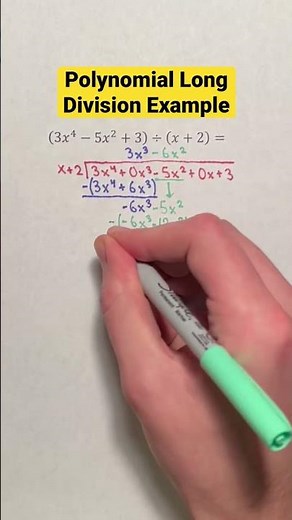 Polynomial Long
Division Example
(3x⁴ − 5x² + 3) ÷ (x + 2) =
3x³ - 6x²
x+2 3x⁴ + 0x³ - 5x² + 0x + 3
-(3x⁴ + 6x³)
-6x³ - 5x²
-(-6x³
Sharpie